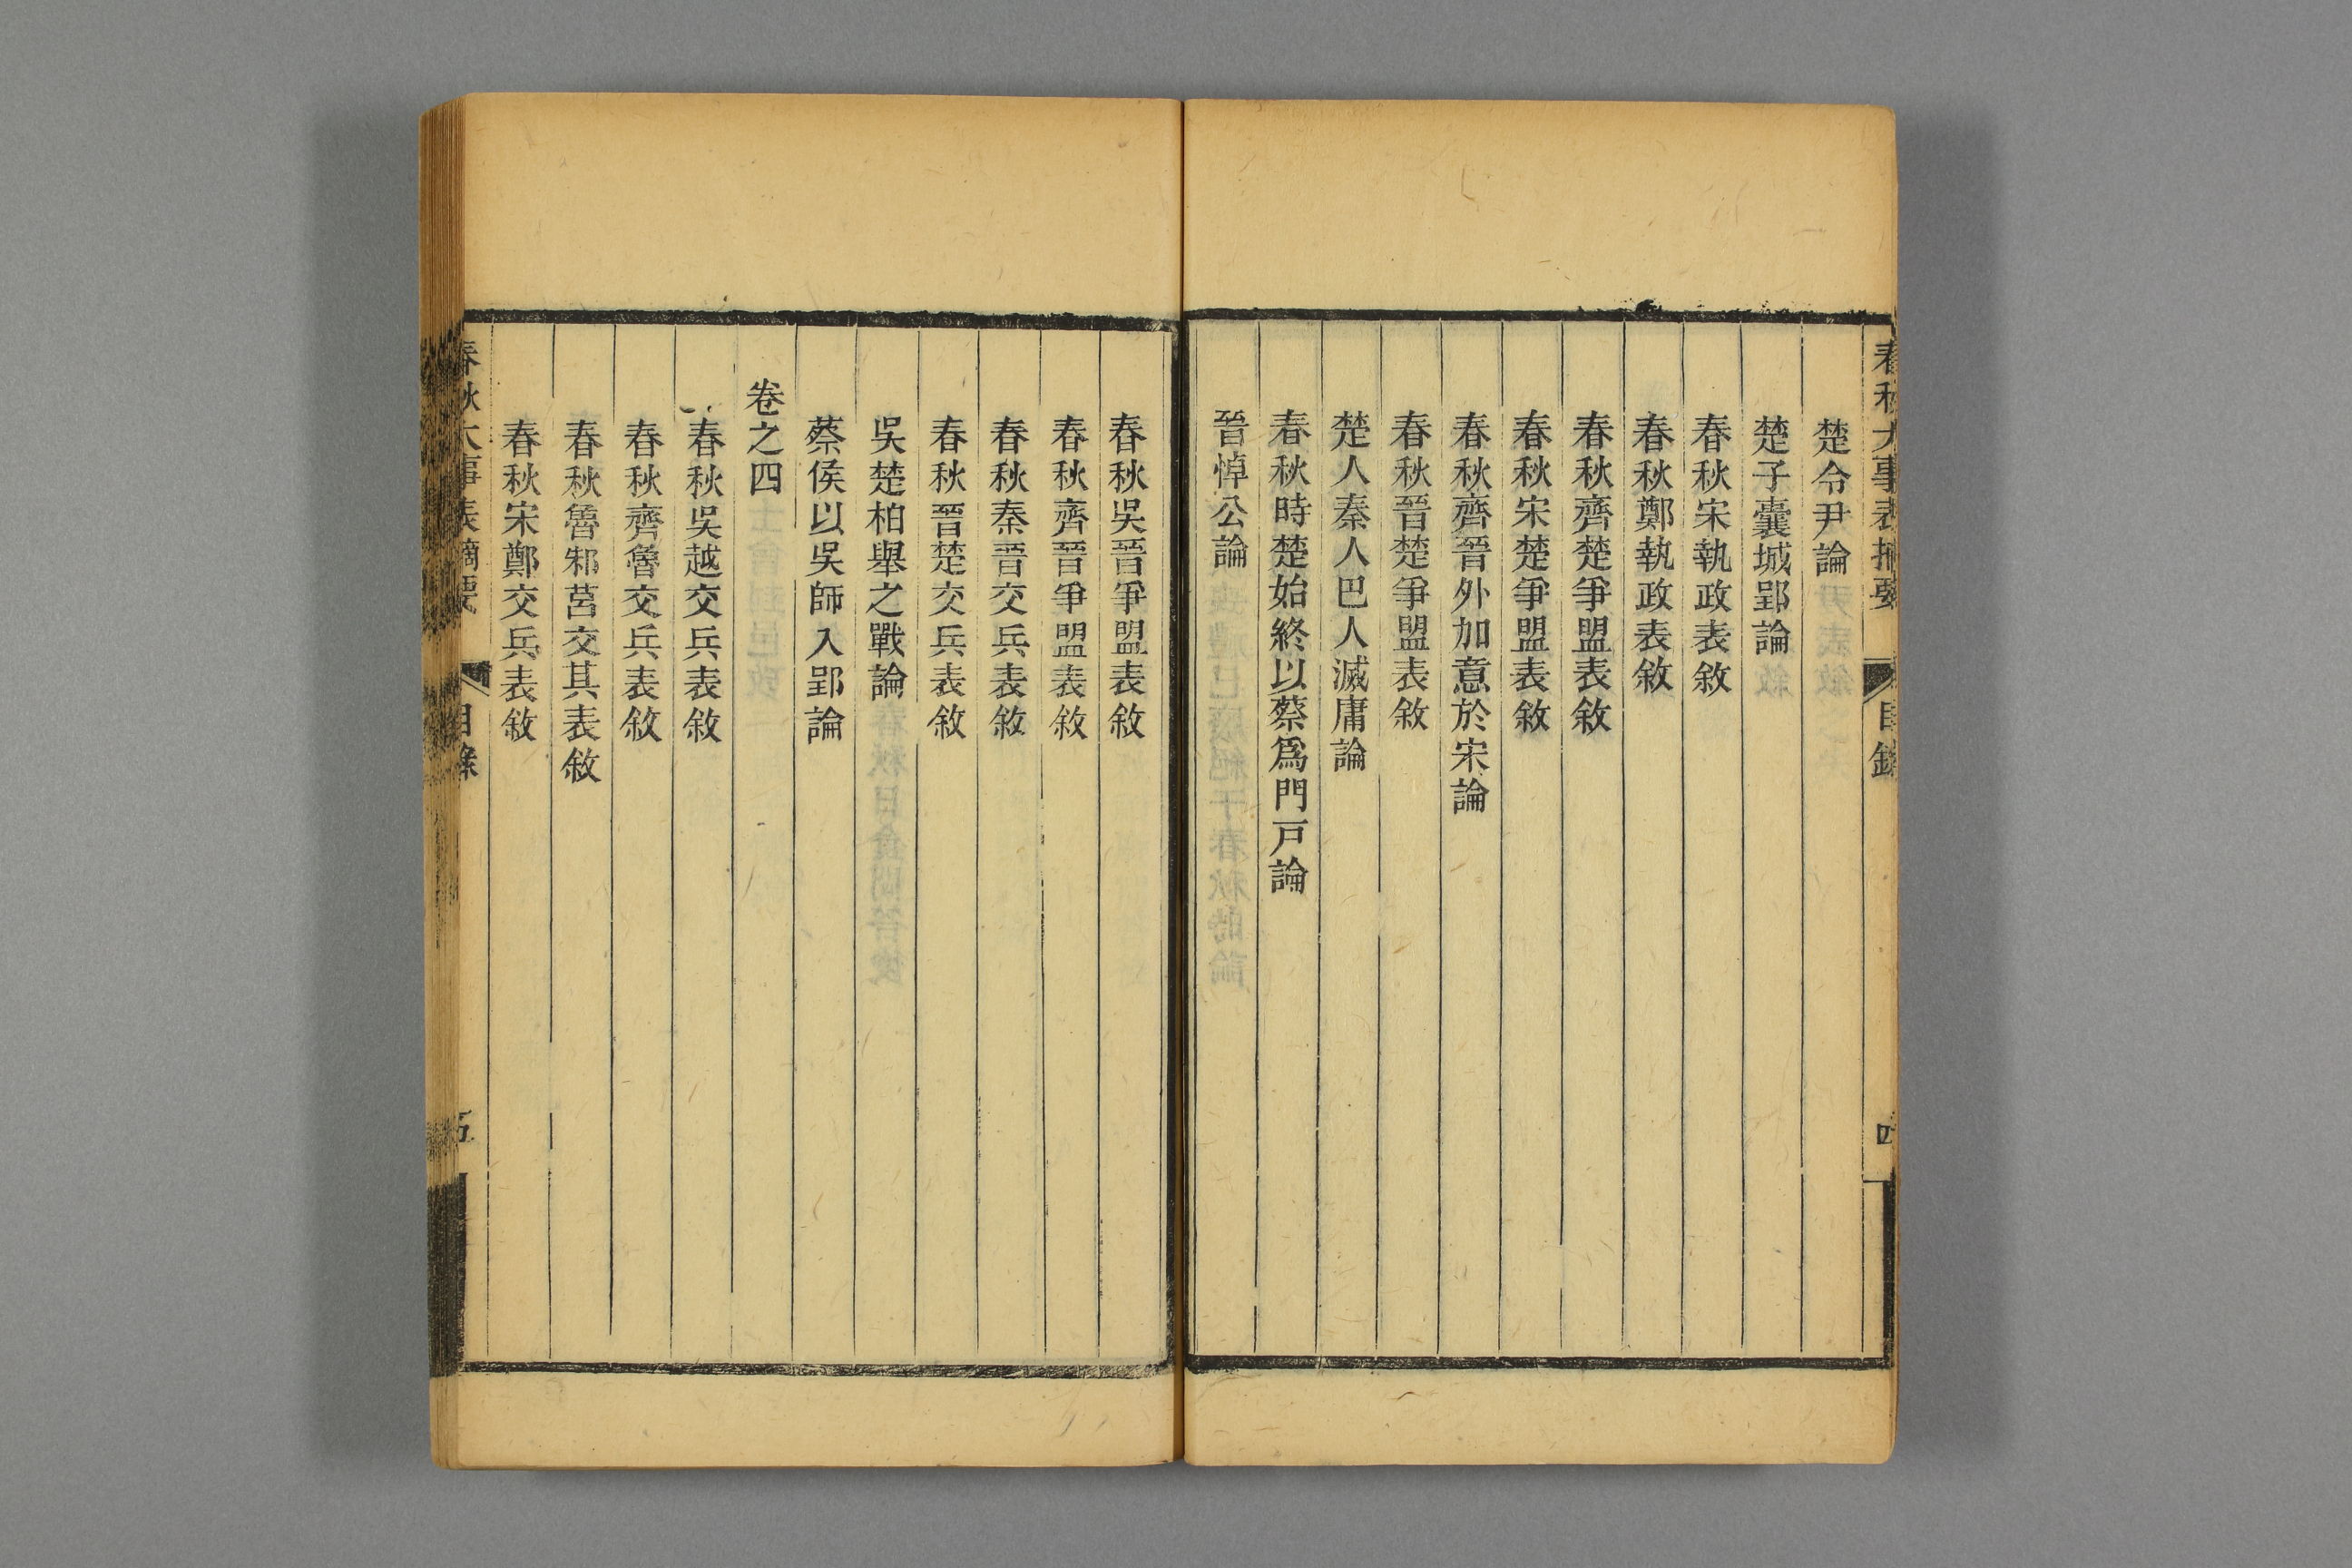 春秋大事表摘要 目錄 四
楚令尹論
楚子囊城郢論
春秋宋執政表敘
春秋鄭執政表敘
春秋齊楚爭盟表敘
春秋宋楚爭盟表敘
春秋齊晉外加意於宋論
春秋晉楚爭盟表敘
楚人秦人巴人滅庸論
春秋時楚始終以蔡爲門戸論
晉悼公論
春秋吳晉爭盟表敘
春秋齊晉爭盟表敘
春秋秦晉交兵表敘
春秋晉楚交兵表敘
吳楚柏舉之戰論
蔡侯以吳師入郢論
卷之四
春秋吳越交兵表敘
春秋齊魯交兵表敘
春秋魯邾莒交其表敘
春秋宋鄭交兵表敘
春秋大事表摘要 目錄 五